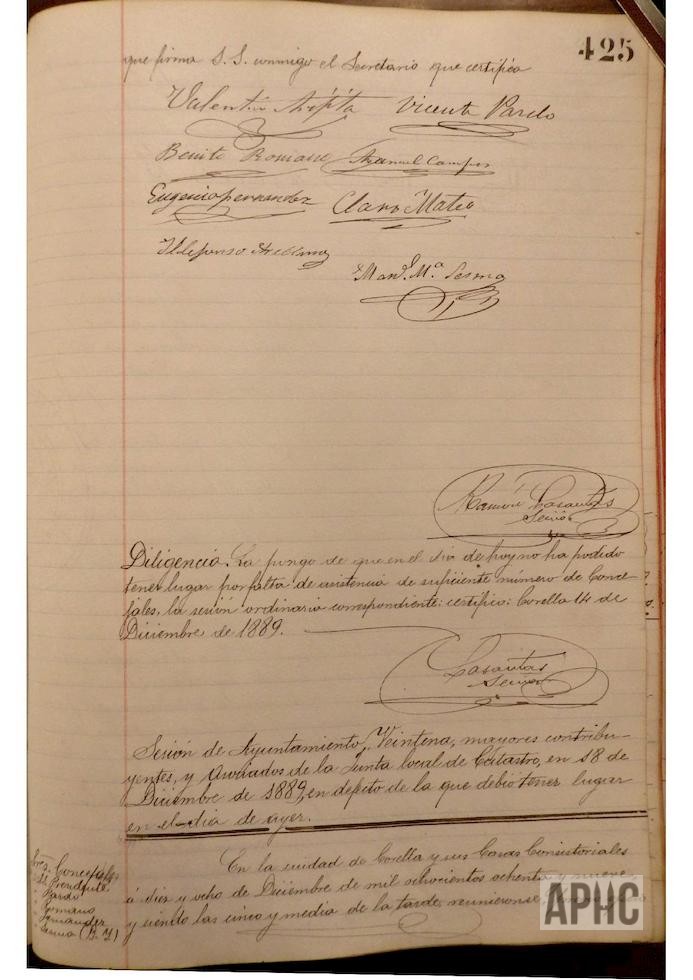 425
que firma S.S. conmigo el Secretario que certifico
Valentín Vicente Pardo
Benito Romano Manuel Campos
Eugenio Fernandez Claro Mateo
Ildefonso Arellano
Man.l M.a Sesma
Ramón Casautas
Secrio
Diligencia. La pongo de que en el dia de hoy no ha podido
tener lugar por falta de asistencia de suficiente número de Conce-
jales, la sesión ordinaria correspondiente: certifico: Corella 14 de
Diciembre de 1889.
Casautas
Secrio
Sesión de Ayuntamiento, Veintena, mayores contribu-
yentes, y Asociados de la Junta local de Catastro, en 18 de
Diciembre de 1889, en defeto de la que debió tener lugar
en el dia de ayer.
Sres. Concejales
Presidente
Pardo
Romano
Fernandez
Sesma (B. Y)
En la ciudad de Corella y sus Casas Consistoriales
á diez y ocho de Diciembre de mil ochocientos ochenta y nueve
y siendo las cinco y media de la tarde, reunieronse,
APHC